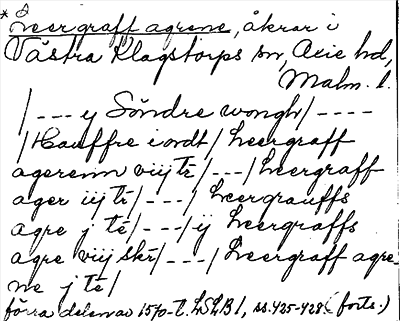 * Leergraff agrene, åkrar i
Västra Klagstorps sn, Oxie hd,
Malm. l.
|--- ij Söndre wongh|----
|Hauffre i ordt| Leergraff
agerenn viij tr|---|Leergraff
ager iij tr|---| Leergrauffs
agre j té|---|ij Leergraffs
agre viij skr|---|Leergraff agre-
ne j té|
förra delen av 1570-t. LSLB1, ss. 425-428 (forts.)